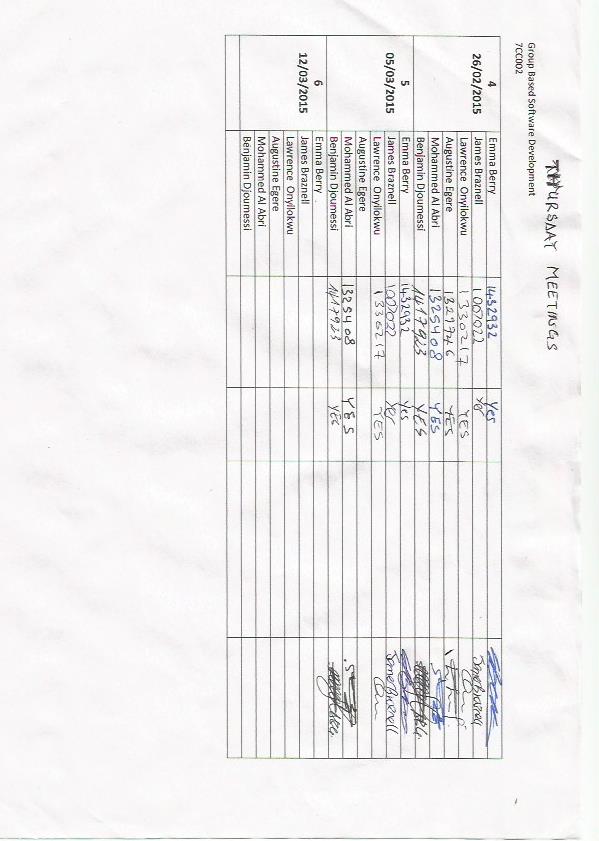 THURSDAY MEETINGS
Group Based Software Development
7CC002
4 26/02/2015 Emma Berry 1432932 Yes
James Braznell 1007022 Yes James Braznell
Lawrence Onyilokwu 1330217 YES
Augustine Egere 1327746 YES
Mohammed Al Abri 1325408 YES
Benjamin Djoumessi 1417923 YES
5 05/03/2015 Emma Berry 1432932 Yes
James Braznell 1007022 Yes James Braznell
Lawrence Onyilokwu 1330217 YES
Augustine Egere
Mohammed Al Abri 1325408 YES
Benjamin Djoumessi 1417923 YES
6 12/03/2015 Emma Berry
James Braznell
Lawrence Onyilokwu
Augustine Egere
Mohammed Al Abri
Benjamin Djoumessi